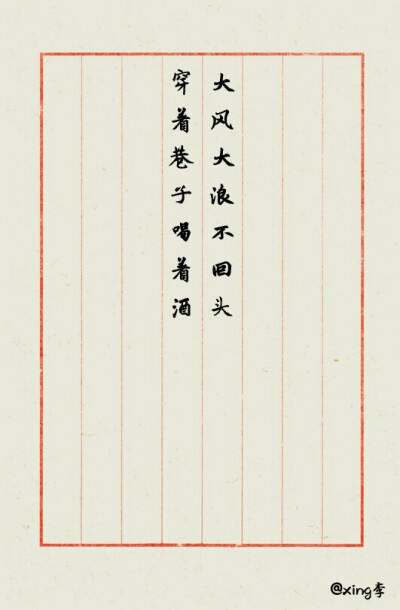 大风大浪不回头
穿着巷子喝着酒
@xing李